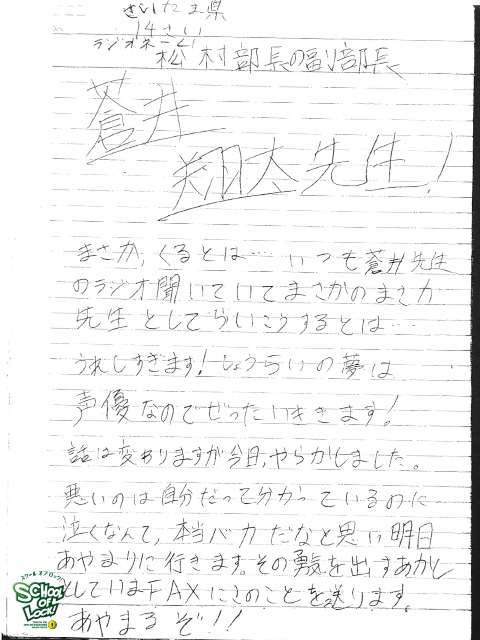 さいたま県
14さい
ラジオネーム
松村部長の副部長
蒼井
翔太先生!
まさか、くるとは… いつも蒼井先生
のラジオ聞いていてまさかのまさか
先生としてらいこうするとは…
うれしすぎます!しょうらいの夢は
声優なのでぜったいききます!
話は変わりますが今日、やらかしました。
悪いのは自分だって分かっているのに…
泣くなんて、本当バカだなと思い明日
あやまりに行きます。その勇気を出すあかし
としていまFAXにこのことを送ります。
あやまるぞ!!
スクール オブ ロック!
SCHOOL
OF
LOCK!